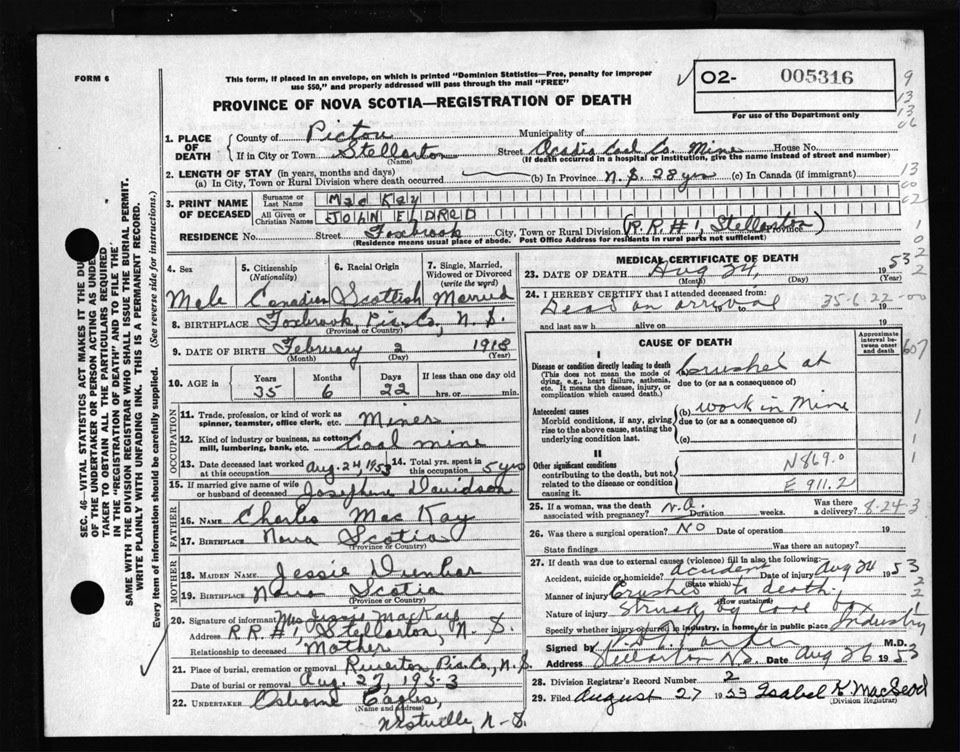 FORM 6
This form, if placed in an envelope, on which is printed "Dominion Statistics—Free, penalty for improper
use $50," and properly addressed will pass through the mail "FREE"
PROVINCE OF NOVA SCOTIA—REGISTRATION OF DEATH
O2- 005316
For use of the Department only
9
13
13
06
1. PLACE OF DEATH County of Pictou Municipality of
If in City or Town Stellarton Street Acadia Coal Co. Mine House No.
(Municipality) (If death occurred in a hospital or institution, give the name instead of street and number)
2. LENGTH OF STAY (in years, months and days)
(a) In City, Town or Rural Division where death occurred (b) In Province N.S. 28 yrs (c) In Canada (if immigrant)
13
00
02
3. PRINT NAME OF DECEASED Surname or Last Name Mac Kay
All Given or Christian Names JOHN ELDRED
RESIDENCE No. Street Foxbrook City, Town or Rural Division (R.R.#1, Stellarton) Province
(Residence means usual place of abode. Post Office Address for residents in rural parts not sufficient)
1
0
2
2
4. Sex 5. Citizenship (Nationality) 6. Racial Origin 7. Single, Married, Widowed or Divorced (write the word)
Male Canadian Scottish Married
8. BIRTHPLACE Foxbrook, Pic. Co., N.S.
(Province or Country)
9. DATE OF BIRTH February 2 1918
(Month) (Day) (Year)
10. AGE in Years Months Days If less than one day old
35 6 22 hrs. or min.
OCCUPATION
11. Trade, profession, or kind of work as
spinner, teamster, office clerk, etc. Miner
12. Kind of industry or business, as cotton
mill, lumbering, bank, etc. Coal mine
13. Date deceased last worked at this occupation Aug. 24, 1953 14. Total yrs. spent in this occupation 5 yrs
15. If married give name of wife
or husband of deceased Josephine Davidson
FATHER
16. NAME Charles Mac Kay
17. BIRTHPLACE Nova Scotia
(Province or Country)
MOTHER
18. MAIDEN NAME Jessie Dunbar
19. BIRTHPLACE Nova Scotia
(Province or Country)
20. Signature of informant Mrs Jessie MacKay
Address R.R.#1, Stellarton, N.S.
Relationship to deceased Mother
21. Place of burial, cremation or removal Riverton, Pic. Co., N.S.
Date of burial or removal Aug. 27, 1953
22. UNDERTAKER Osborne Eagles,
(Name and address)
Westville, N-S.
MEDICAL CERTIFICATE OF DEATH
23. DATE OF DEATH Aug 24, 1953
(Month) (Day) (Year)
24. I HEREBY CERTIFY that I attended deceased from:
Dead on arrival 19 to 19 35-6-22-00
and last saw h alive on 19
CAUSE OF DEATH
Approximate interval between onset and death
607
I
Disease or condition directly leading to death
(This does not mean the mode of dying, e.g., heart failure, asthenia, etc. It means the disease, injury, or complication which caused death.)
crushed at
due to (or as a consequence of)
Antecedent causes
Morbid conditions, if any, giving rise to the above cause, stating the underlying condition last.
(b) work in Mine
due to (or as a consequence of)
(c)
1
1
1
II
Other significant conditions
contributing to the death, but not related to the disease or condition causing it.
N869.0
E 911.2
25. If a woman, was the death
associated with pregnancy? n.a. Duration weeks. Was there a delivery? 8-24-3
26. Was there a surgical operation? NO Date of operation 19
State findings Was there an autopsy?
27. If death was due to external causes (violence) fill in also the following:
Accident, suicide or homicide? accident Date of injury Aug 24 1953
(State which)
Manner of injury Crushed to death.
(How sustained)
Nature of injury Struck by coal box
Specify whether injury occurred in industry, in home, or in public place Industry
Signed by M.D.
Address Stellarton N.S. Date Aug 26 1953
28. Division Registrar's Record Number 2
29. Filed August 27 1953 Isabel K. MacLeod
(Division Registrar)
SEC. 46—VITAL STATISTICS ACT MAKES IT THE DUTY
OF THE UNDERTAKER OR PERSON ACTING AS UNDER-
TAKER TO OBTAIN ALL THE PARTICULARS REQUIRED
IN THE "REGISTRATION OF DEATH" AND TO FILE THE
SAME WITH THE DIVISION REGISTRAR WHO SHALL ISSUE THE BURIAL PERMIT.
WRITE PLAINLY WITH UNFADING INK. THIS IS A PERMANENT RECORD.
Every item of information should be carefully supplied. (See reverse side for instructions.)